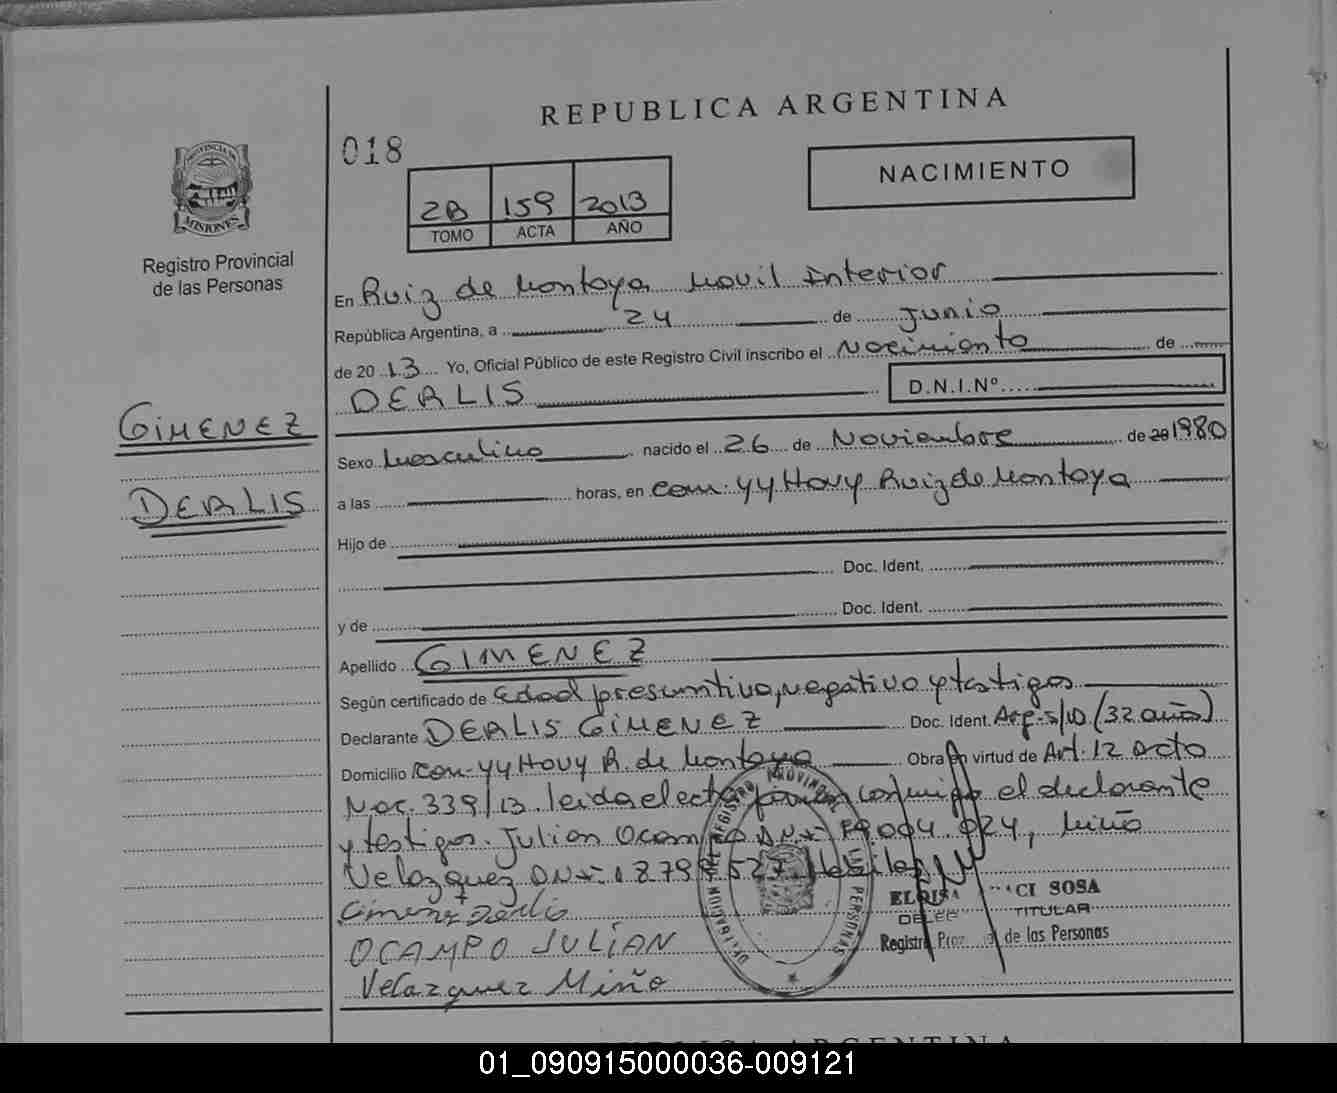 REPUBLICA ARGENTINA
018
NACIMIENTO
2B 159 2013
TOMO ACTA AÑO
PROVINCIA DE
MISIONES
Registro Provincial
de las Personas
En Ruiz de Montoya Movil Interior
República Argentina, a 24 de Junio
de 2013 Yo, Oficial Público de este Registro Civil inscribo el Nacimiento de
DERLIS D.N.I.Nº
GIMENEZ
DERLIS
Sexo Masculino nacido el 26 de Noviembre de 20 1980
a las horas, en Com. YY Hovy Ruiz de Montoya
Hijo de
Doc. Ident.
y de Doc. Ident.
Apellido GIMENEZ
Según certificado de Edad presuntiva, negativo y testigos
Declarante DERLIS GIMENEZ Doc. Ident. Arg-S/D (32 años)
Domicilio Com-YY Hovy R. de Montoya Obra en virtud de Art. 12 acto
Nac. 339/13 leida el acta firman conmigo el declarante
y testigos. Julian Ocampo DNI 024, Miño
Velazquez DNI: 18798527. Habiles
Gimenez Derlis
OCAMPO JULIAN
Velazquez Miño
CI SOSA
TITULAR
Registro de las Personas
REGISTRO PROVINCIAL
DE LAS PERSONAS
REPUBLICA ARGENTINA
01_090915000036-009121